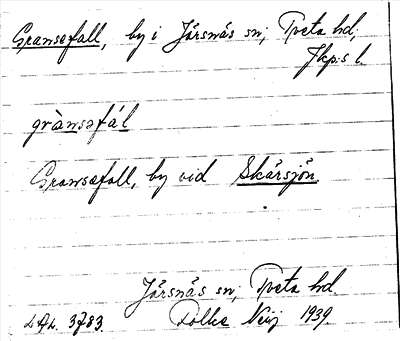 Gransafall, by i Järsnäs sn; Tveta hd,
Jkp:s l.
grànsafál
Gransafall, by vid Skärsjön.
Järsnäs sn; Tveta hd.
3783. Folke Neij 1939.